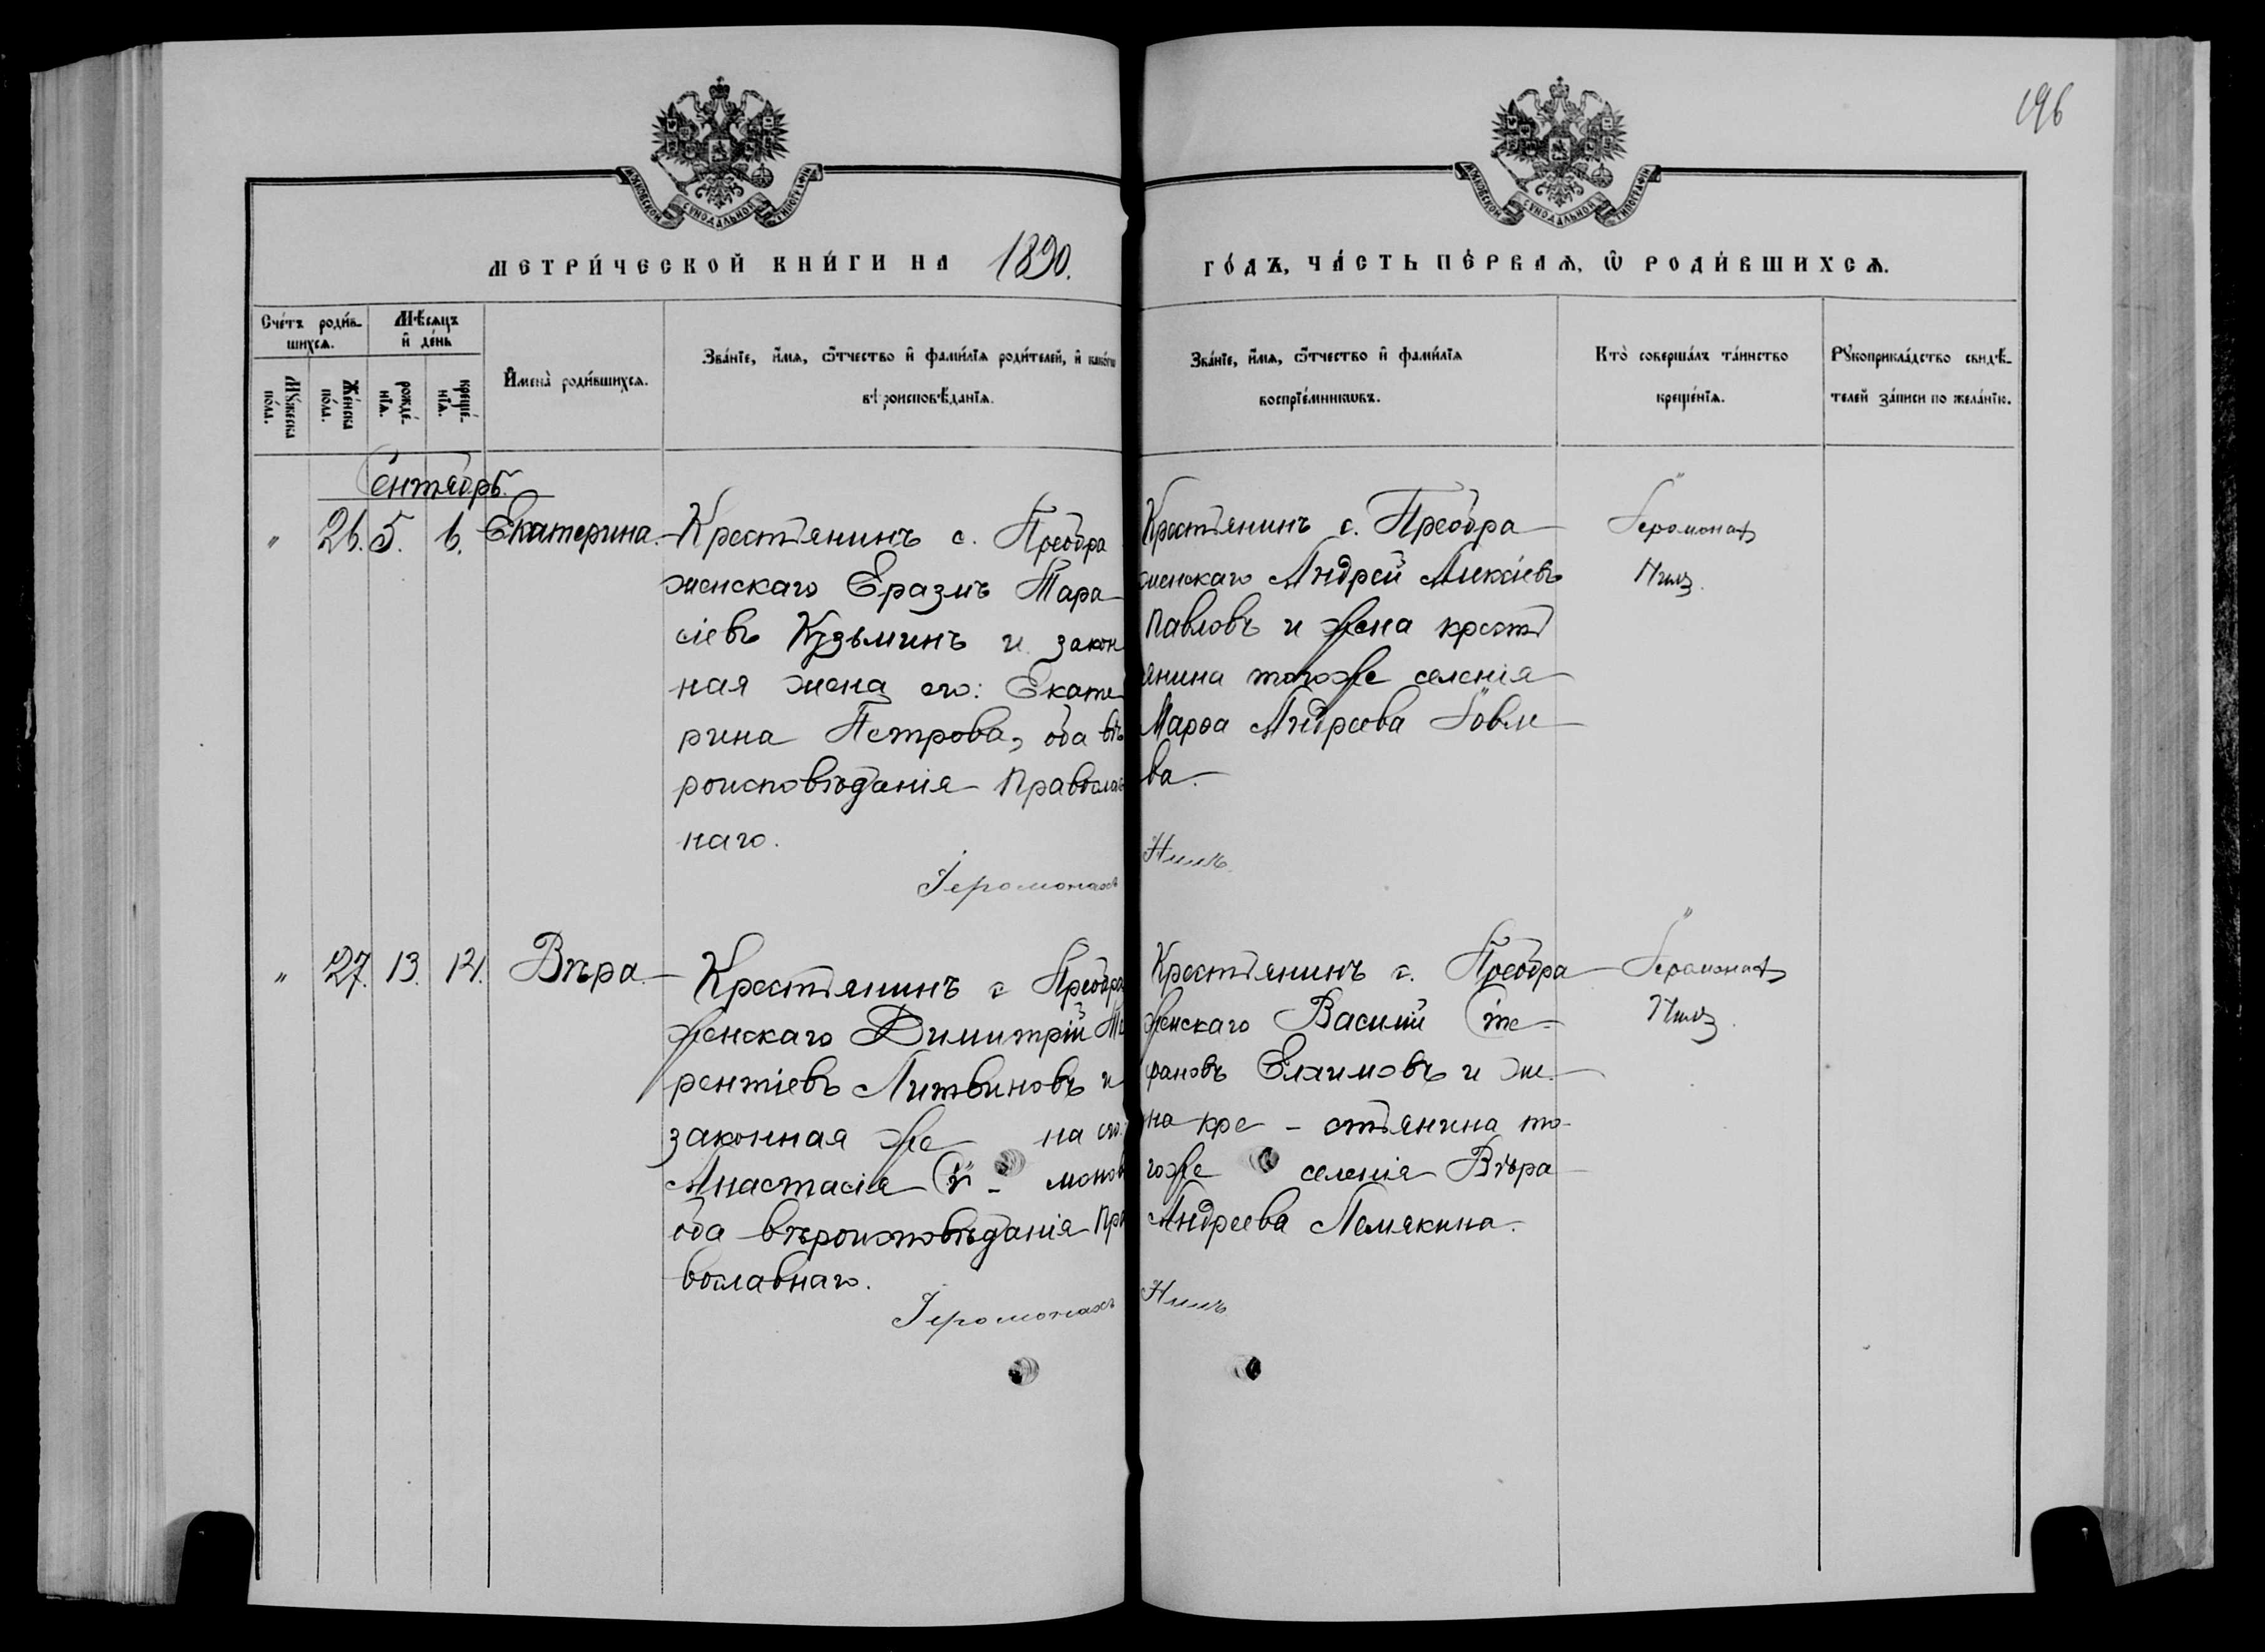 196
МОСКОВСКОЙ СѴНОДАЛЬНОЙ ТИПОГРАФІИ
МОСКОВСКОЙ СѴНОДАЛЬНОЙ ТИПОГРАФІИ
МЕТРИ́ЧЕСКОЙ КНИ́ГИ НА 1890.
ГО́ДЪ, ЧА́СТЬ ПЕ́РВАѦ, Ѡ РОДИ́ВШИХСѦ.
Сче́тъ роди́в-
шихсѧ.
Мꙋ́жеска
по́ла.
Же́нска
по́ла.
Мѣ́сѧцъ
и҆ де́нь
рожде́-
нїѧ.
креще́-
нїѧ.
И҆мена̀ роди́вшихсѧ.
Зва́нїе, и҆́мѧ, ѻ҆́тчество и҆ фами́лїѧ роди́телей, и҆ како́гѡ
вѣроисповѣ́данїѧ.
Зва́нїе, и҆́мѧ, ѻ҆́тчество и҆ фами́лїѧ
воспрїе́мникѡвъ.
Кто̀ соверша́лъ та́инство
креще́нїѧ.
Рꙋкоприкла́дство свидѣ́-
телей за́писи по жела́нїю.
Сентябрь.
" 26. 5. 6. Екатерина.
Крестьянинъ с. Преобра
женскаго Еразмъ Тара
сіевъ Кузьминъ и закон
ная жена его: Екате
рина Петрова, оба вѣ
роисповѣданія Православ
наго.
Іеромонахъ
Крестьянинъ с. Преобра
женскаго Андрей Алексіевъ
Павловъ и жена кресть
янина тогоже селенія
Марѳа Андреева Іовле
ва.
Нилъ
Іеромонахъ
Нилъ.
" 27. 13. 14. Вѣра.
Крестьянинъ с Преобра
женскаго Димитрій Те
рентіевъ Литвиновъ и
законная же на его:
Анастасія Си- монов
оба вѣроисповѣданія Пра
вославнаго.
Іеромонахъ
Крестьянинъ с. Преобра
женскаго Василій Сте-
фановъ Евлкимовъ и же-
на кре - стьянина то-
гоже селенія Вѣра
Андреева Лемякина.
Нилъ
Іеромонахъ
Нилъ.